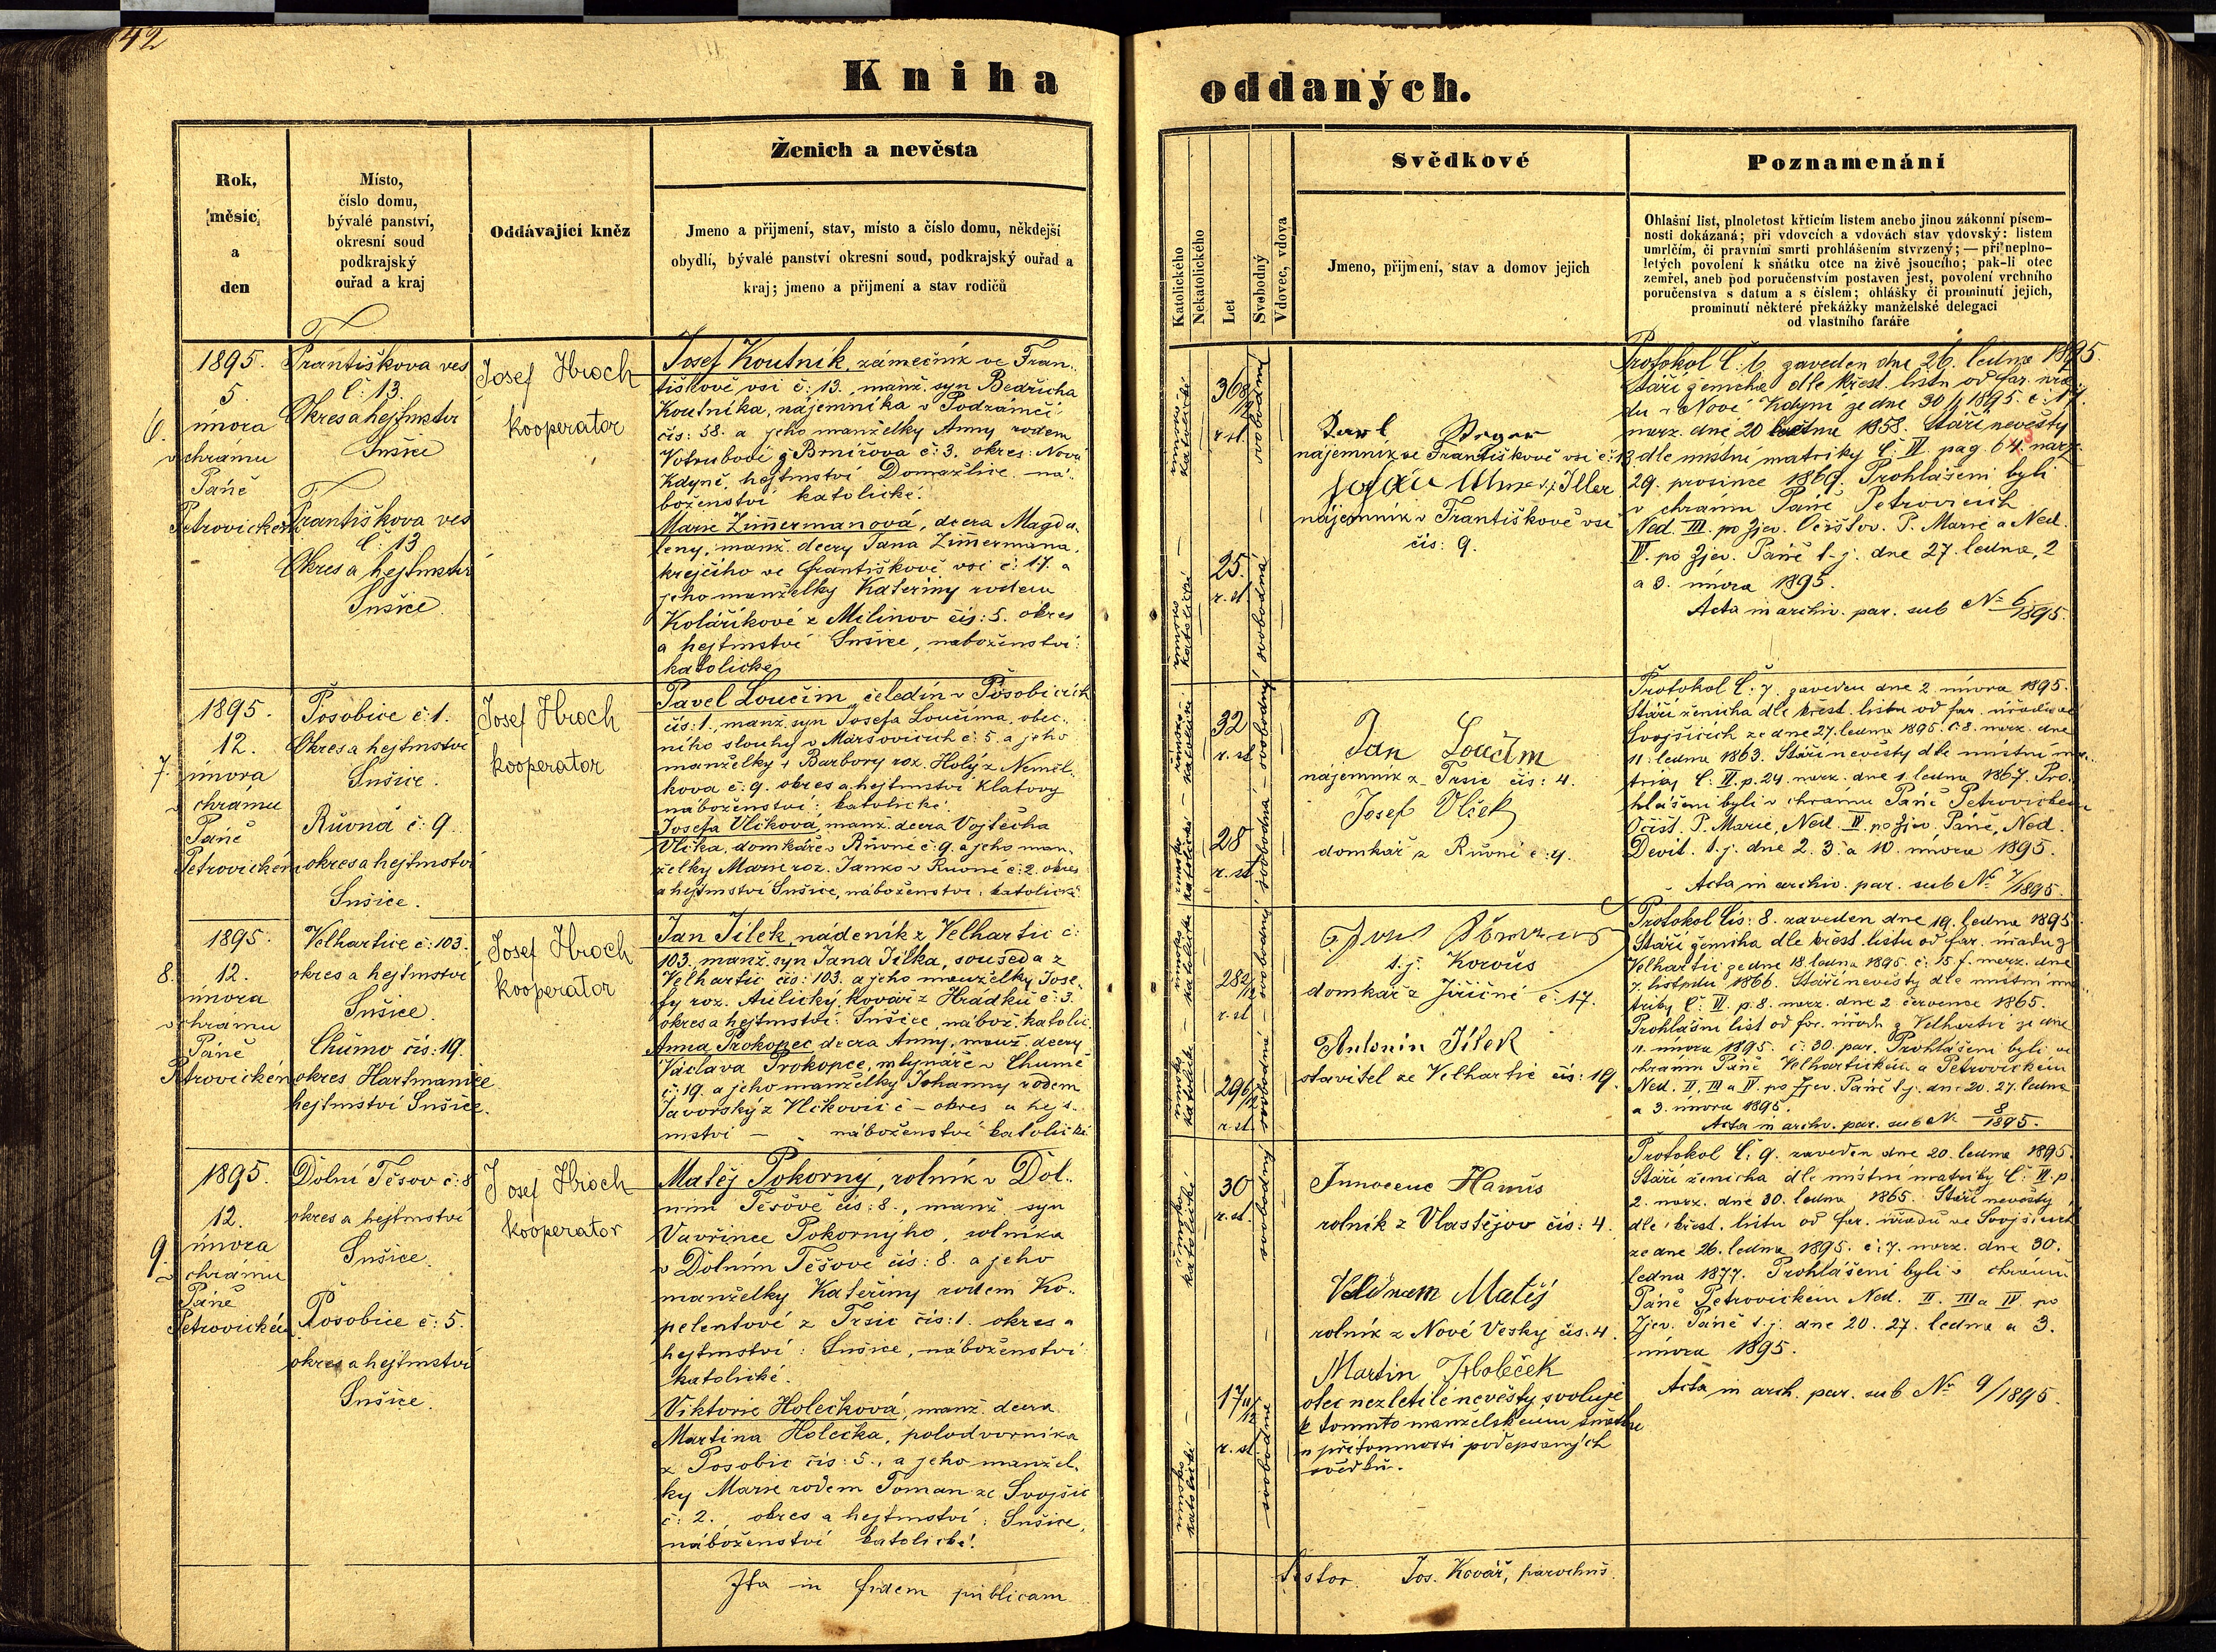 42
Kniha oddaných.
Rok,
měsíc
a
den
Místo,
číslo domu,
bývalé panství,
okresní soud
podkrajský
ouřad a kraj
Oddávající kněz
Ženich a nevěsta
Jmeno a přijmení, stav, místo a číslo domu, někdejší
obydlí, bývalé panství okresní soud, podkrajský ouřad a
kraj; jmeno a přijmení a stav rodičů
Katolického
Nekatolického
Let
Svobodný
Vdovec, vdova
Svědkové
Jmeno, přijmení, stav a domov jejich
Poznamenání
Ohlašní list, plnoletost křticím listem anebo jinou zákonní písem-
nosti dokázaná; při vdovcích a vdovách stav vdovský: listem
umrlčím, či pravním smrti prohlášením stvrzený; — při neplno-
letých povolení k sňátku otce na živě jsoucího; pak-li otec
zemřel, aneb pod poručenstvím postaven jest, povolení vrchního
poručenstva s datum a s číslem; ohlášky či prominutí jejich,
prominutí některé překážky manželské delegaci
od vlastního faráře
6.
1895.
5.
února
v chrámu
Páně
Petrovickém
Františkova ves
č: 13.
Okres a hejtmství
Sušice
Františkova ves
č: 13
Okres a hejtmství
Sušice.
Josef Hroch
kooperator
Josef Koutník, zámečník ve Fran-
tiškově vsi č: 13., manž. syn Bedřicha
Koutníka, nájemníka v Podzámčí
čís: 58. a jeho manželky Anny rodem
Votrubové z Brnířova č: 3. okres: Nová
Kdyně, hejtmství Domažlice. ná-
boženství katolické.
Marie Zimermanová, dcera Magda-
leny, manž. dcery Jana Zimermana,
krejčího ve Františkově vsi č: 17. a
jeho manželky Kateřiny rodem
Kolaříkové z Milínov čís: 5. okres
a hejtmství Sušice, náboženství:
katolické
římsko
katolické
36 8/12
r. st.
svobodný
římsko
katolické
25.
r. st.
svobodná
Karl
nájemník ve Františkově vsi č: 13.
nájemník v Františkově vsi
čís: 9.
Protokol Č: 6 zaveden dne 26. ledna 1895
Stáří ženicha dle křest. listu od far. úřa-
du v Nové Kdyni ze dne 30/1 1895. č: 17.
narz. dne 20 1858. Stáří nevěsty
dle místní matriky Č: VI. pag. 64 narz.
29. prosince 1869. Prohlášeni byli
v chrámu Páně Petrovicích
Ned. III. po Zjev. Očišťov. P. Marie a Ned.
IV. po Zjev. Páně t. j. dne 27. ledna, 2
a 3. února 1895.
Acta in archiv. par. sub No 6/1895.
7.
1895.
12.
února
v chrámu
Páně
Petrovickém
Posobice č: 1.
Okres a hejtmství
Sušice.
Růvná č: 9.
okres a hejtmství
Sušice.
Josef Hroch
kooperator
Pavel Loučim, čeledín v Posobicích
čís: 1., manž. syn Josefa Loučima, obec-
ního slouhy v Maršovicích č: 5. a jeho
manželky † Barbory roz. Holý z Nemil-
kova č: 9. okres a hejtmství Klatovy
náboženství: katolické.
Josefa Vlčková, manž. dcera Vojtěcha
Vlčka, domkáře v Růvné č: 9. a jeho man-
želky Marie roz. Janko v Růvné č: 2. okres
a hejtmství Sušice, náboženství: katolické
římsko
katolické
32
r. st.
svobodný
římsko
katolické
28
r. st.
svobodná
Jan Loučim
nájemník z Trsic čís: 4.
Josef Vlček
domkář z Růvné č: 4.
Protokol Č: 7. zaveden dne 2. února 1895.
Stáří ženicha dle křest. listu od far. úřadu ve
Svojšicích ze dne 27. ledna 1895. č: 8. narz. dne
11. ledna 1863. Stáří nevěsty dle místní ma-
triky Č: VI. p. 24. narz. dne 1. ledna 1867. Pro-
hlášeni byli v chrámu Páně Petrovickém
Očišť. P. Marie, Ned. IV. po Zjev. Páně, Ned.
Devít. t. j. dne 2. 3. a 10. února 1895.
Acta in archiv. par. sub No 7/1895.
8.
1895.
12.
února
v chrámu
Páně
Petrovickém
Velhartice č: 103.
okres a hejtmství
Sušice.
Chůmo čís: 19.
okres Hartmanice
hejtmství Sušice.
Josef Hroch
kooperator
Jan Jílek, nádeník z Velhartic č:
103., manž. syn Jana Jílka, souseda z
Velhartic čís: 103. a jeho manželky Jose-
fy roz. Aulický, kovář z Hrádku č: 3.
okres a hejtmství: Sušice, nábož. katolic.
Anna Prokopec dcera Anny, manž. dcery
Václava Prokopce, mlynáře v Chumě
č: 19. a jeho manželky Johanny rodem
Javorský z Vlčkovic č – okres a hejt-
mství – náboženství katolické
římsko
katolické
28 2/12
r. st.
svobodný
římsko
katolické
29 6/12
r. st.
svobodná
t. j. Korouš
domkář z Jiřičné č: 17.
Antonín Jílek
stavitel ze Velhartic čís: 19.
Protokol čís: 8. zaveden dne 19. ledna 1895
Stáří ženicha dle křest. listu od far. úřadu z
Velhartic ze dne 18. ledna 1895. č: 15. f. narz. dne
7. listopadu 1866. Stáří nevěsty dle místní ma-
triky Č: VI. p. 8. narz. dne 2. července 1865.
Prohlášní list od far. úřadu z Velhartic ze dne
11. února 1895. č: 30. par. Prohlášeni byli ve
chrámu Páně Velhartickém a Petrovickém
Ned. II, III a IV. po Zjev. Páně t. j. dne 20. 27. ledna
a 3. února 1895.
Acta in archv. par. sub N 8/1895.
9.
1895.
12.
února
v chrámu
Páně
Petrovickém
Dolní Těšov č: 8
okres a hejtmství
Sušice.
Posobice č: 5.
okres a hejtmství
Sušice.
Josef Hroch
kooperator
Matěj Pokorný, rolník v Dol-
ním Těšově čís: 8., manž. syn
Vavřince Pokorného, rolníka
v Dolním Těšově čís: 8. a jeho
manželky Kateřiny rodem Ko-
pelentové z Trsic čís: 1. okres a
hejtmství: Sušice, náboženství:
katolické.
Viktorie Holečková, manž. dcera
Martina Holečka, polodvorníka
z Posobic čís: 5., a jeho manžel-
ky Marie rodem Toman ze Svojšic
č: 2., okres a hejtmství: Sušice,
náboženství katolické.
římsko
katolické
30
r. st.
svobodný
římsko
katolické
17 11/12
r. st.
svobodná
Innocenc Hanuš
rolník z Vlastějov čís: 4.
Matěj
rolník z Nové Vesky čís. 4.
Martin Holeček
otec nezletilé nevěsty svoluje
k tomuto manželskému sňatku
v přítomnosti podepsaných
svědků.
Protokol Č: 9. zaveden dne 20. ledna 1895.
Stáří ženicha dle místní matriky Č: VI. p.
2. narz. dne 30. ledna 1865. Stáří nevěsty
dle křest. listu od far. úřadu ve Svojšicích
ze dne 26. ledna 1895. č: 7. narz. dne 30.
ledna 1877. Prohlášeni byli v chrámu
Páně Petrovickém Ned. II. III a IV. po
Zjev. Páně t. j. dne 20. 27. ledna a 3.
února 1895.
Acta in arch. par. sub No 9/1895.
Ita in fidem publicam
testor Jos. Kovář, parochus.